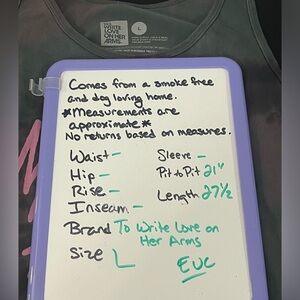 TO
WRITE
LOVE
ON HER
ARMS.
L
Comes from a smoke free
and dog loving home.
*Measurements are
approximate*
No returns based on measures.
Waist -
Sleeve -
Hip -
Pit to Pit 21"
Rise -
Length 27½
Inseam -
Brand To Write Love on
Her Arms
Size L
EUC